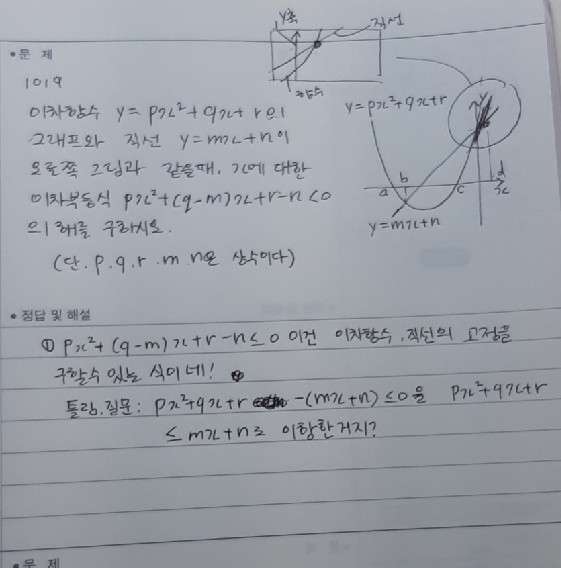 y축
직선
함수
• 문 제
1019
이차함수 y = px²+qx+r의
그래프와 직선 y=mx+n이
오른쪽 그림과 같을때, x에 대한
이차부등식 px²+(q-m)x+r-n<0
의 해를 구하시오.
(단. p. q. r. m. n은 상수이다)
y=px²+qx+r
y
a b c d
x
y=mx+n
• 정답 및 해설
① px²+(q-m)x+r-n≤0 이건 이차함수, 직선의 교점을
구할수 있는 식이네!
틀림, 질문: px²+qx+r -(mx+n)≤0을 px²+qx+r
≤ mx+n로 이항한거지?
• 문 제